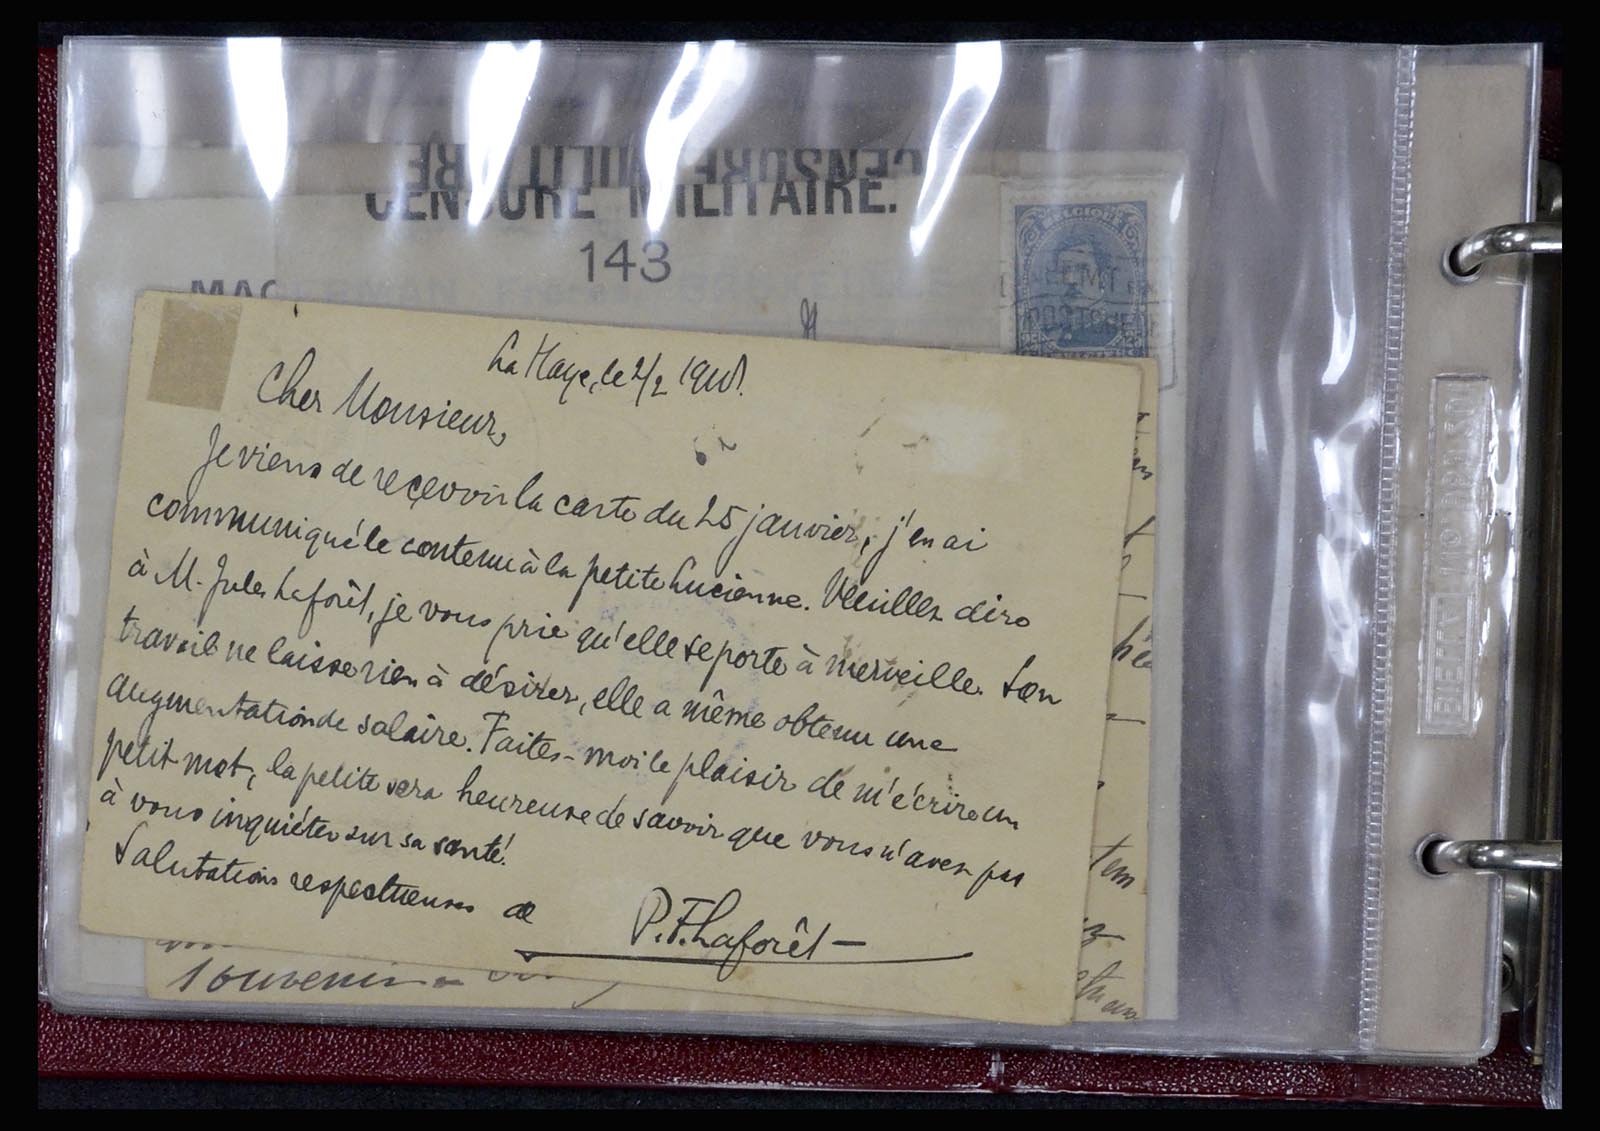 CENSURE MILITAIRE
CENSURE MILITAIRE.
143
BELGIQUE
25 25
La Haye, le 2/2 1918.
Cher Monsieur,
Je viens de recevoir la carte du 25 janvier, j'en ai
communiqué le contenu à la petite Lucienne. Veuillez dire
à M. Jules Laforêt, je vous prie qu'elle se porte à merveille. Son
travail ne laisse rien à désirer, elle a même obtenu une
augmentation de salaire. Faites-moi le plaisir de m'écrire un
petit mot, la petite sera heureuse de savoir que vous n'avez pas
à vous inquiéter sur sa santé!
Salutations respectueuses de P.F. Laforêt
tem
Souvenir